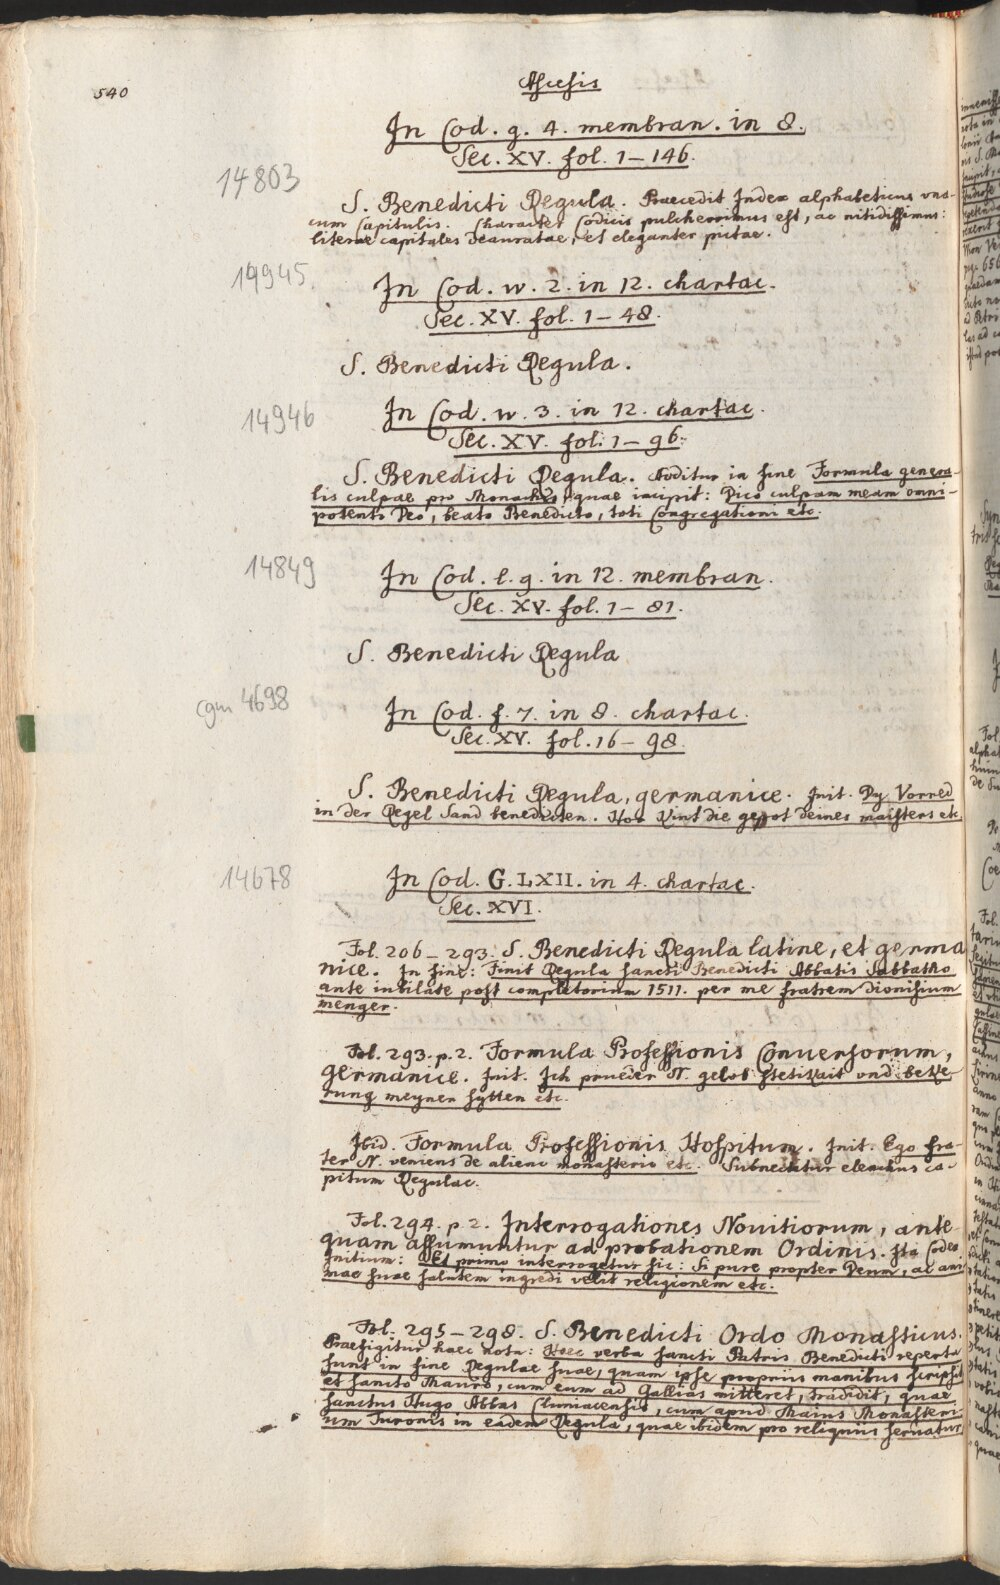 540
Ascesis
In Cod. g. 4. membran. in 8.
Sec. XV. fol. 1-146.
14803
S. Benedicti Regula. Praecedit Index alphabeticus vna
cum Capitulis. Character Codicis pulcherrimus est, ac nitidissimus:
literae capitales deauratae, et eleganter pictae.
14945
In Cod. w. 2. in 12. chartac.
Sec. XV. fol. 1-48.
S. Benedicti Regula.
14946
In Cod. w. 3. in 12. chartac.
Sec. XV. fol. 1-96.
S. Benedicti Regula. Additur in fine Formula genera-
lis culpae pro Monachis, quae incipit: Dico culpam meam omni-
potenti Deo, beato Benedicto, toti Congregationi etc.
14849
In Cod. l. 9. in 12. membran.
Sec. XV. fol. 1-81.
S. Benedicti Regula
cgm 4698
In Cod. f. 7. in 8. chartac.
Sec. XV. fol. 16-98.
S. Benedicti Regula, germanice. Init. Dy Vorred
in der Regel Sand benedicten. Hor Kint die gepot deines maisters etc.
14678
In Cod. G. LXII. in 4. chartac.
Sec. XVI.
Fol. 206-293. S. Benedicti Regula latine, et germa
nice. In fine: Finit Regula sancti Benedicti Abbatis Sabbatho
ante iubilate post completorium 1511. per me fratrem dionisium
menger.
Fol. 293. p. 2. Formula Professionis Conuersorum,
germanice. Init. Ich prueder N. gelob stetikait vnd beke-
rung meyner sytten etc.
Ibid. Formula Professionis Hospitum. Init. Ego fra-
ter N. veniens de alieno monasterio etc. Subnectitur elenchus ca-
pitum Regulae.
Fol. 294. p. 2. Interrogationes Nouitiorum, ante-
quam assumuntur ad probationem Ordinis. Ita Codex
Initium: Et primo interrogetur sic: Si pure propter Deum, ac ani
mae suae salutem ingredi velit religionem etc.
Fol. 295-298. S. Benedicti Ordo Monasticus.
Praefigitur haec nota: Haec verba sancti Patris Benedicti reperta
sunt in fine Regulae suae, quam ipse propriis manibus scripsit
et sancto Mauro, cum eum ad Gallias mitteret, tradidit, quae
sanctus Hugo Abbas Clumacensis, cum apud Mains Monasteri-
um Turonis in eadem Regula, quae ibidem pro reliquiis seruatur